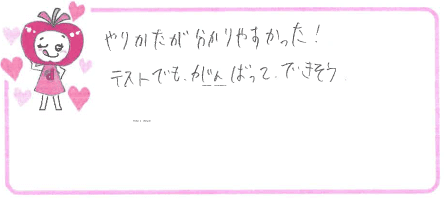 やりかたが分かりやすかった!
テストでも、がんばって、できそう